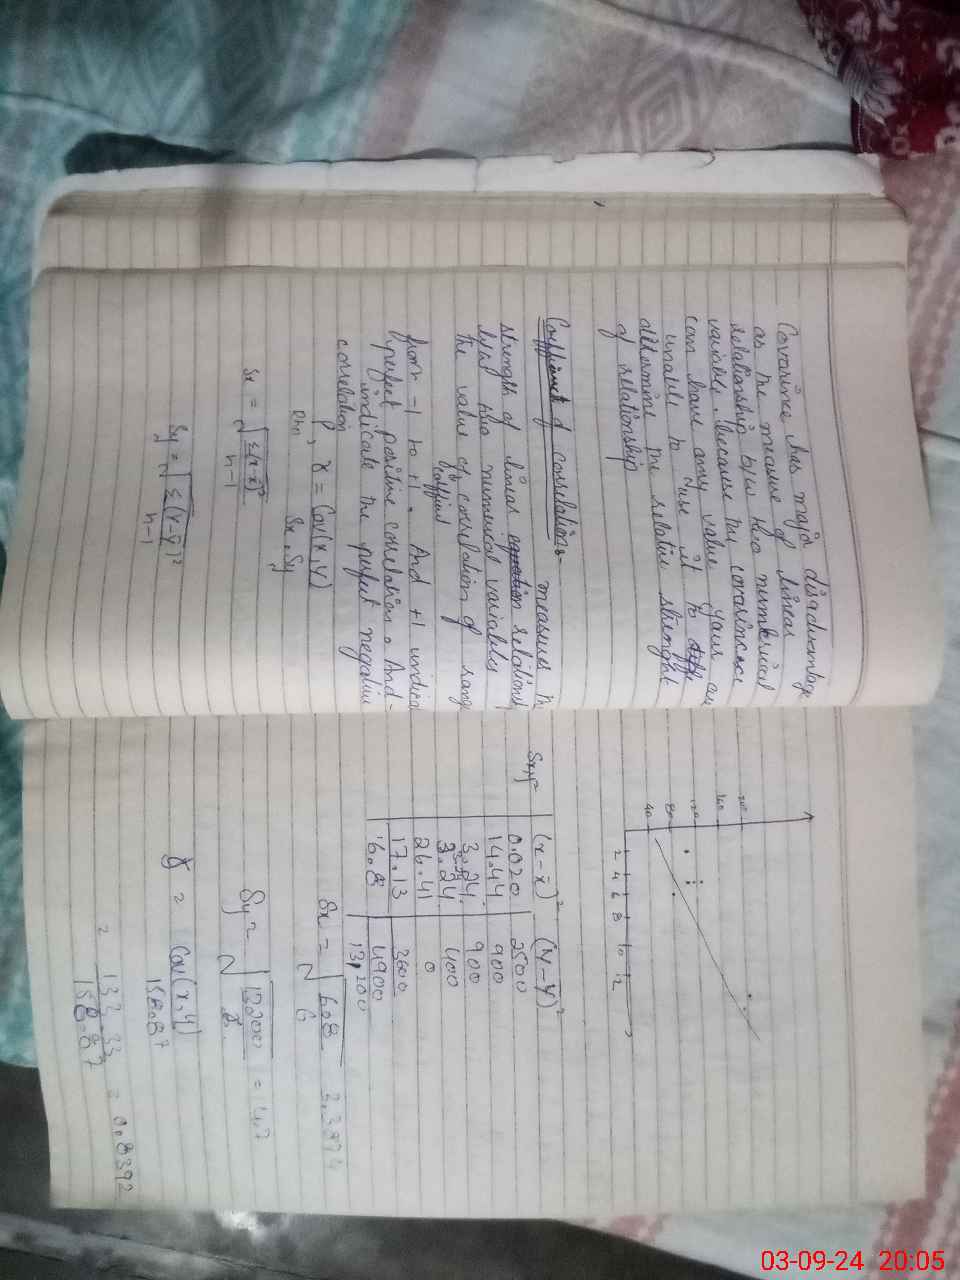 Covarince has major disadvantage
as the measure of linear
relationship b/w two numerical
variable. Because the covarince
can have any value yours are
unable to use it to
determine the relative strenght
of relationship
Coefficient of correlation:- measures the
strength of linear relations
the value of correlation of rang
coffient
from -1 to +1. And +1 indica
perfect positive correlation. And -
indicate the perfect negative
correlation
r = Cov(x,y)
Sx, Sy
Sx = √Σ(x-x̄)²
n-1
Sy = √Σ(Y-Ȳ)²
n-1
200
160
120
80
40
2 4 6 8 10 12
(x-x̄)² (Y-Ȳ)²
0.020 2500
14.44 900
3.24 900
3.24 400
26.41 0
17.13 3600
4900
13,200
Sx =
6
2.3874
Sy =
= Cov(x,y)
158.87
= 133.33 = 0.8392
158.87
03-09-24 20:05